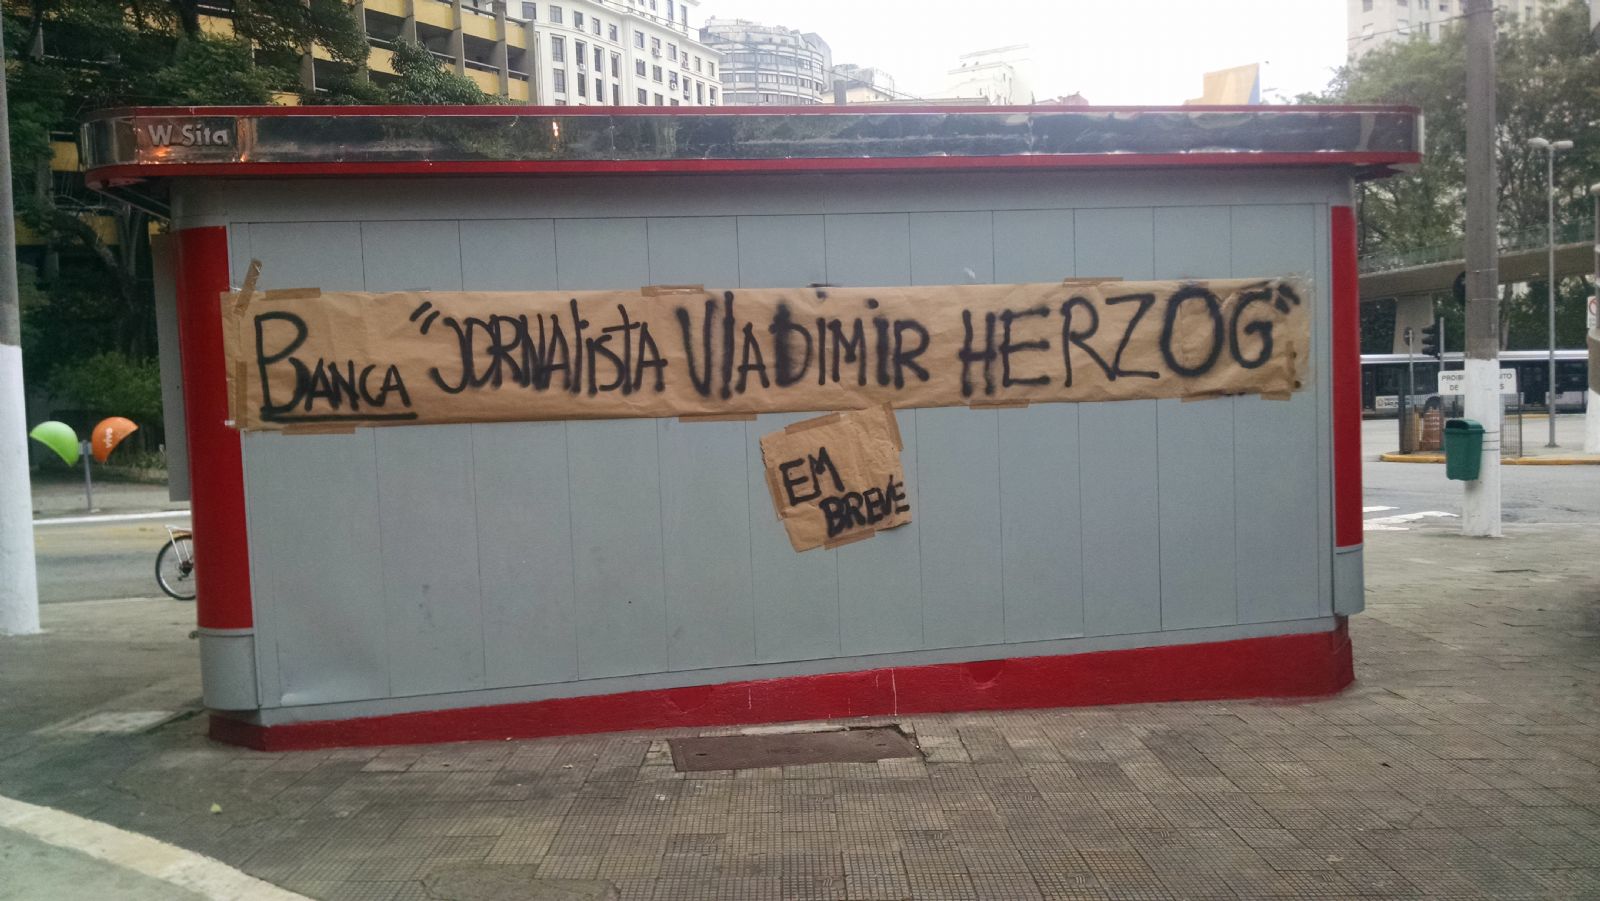 W.Sita
BANCA "JORNALISTA VLADIMIR HERZOG"
EM
BREVE
vivo